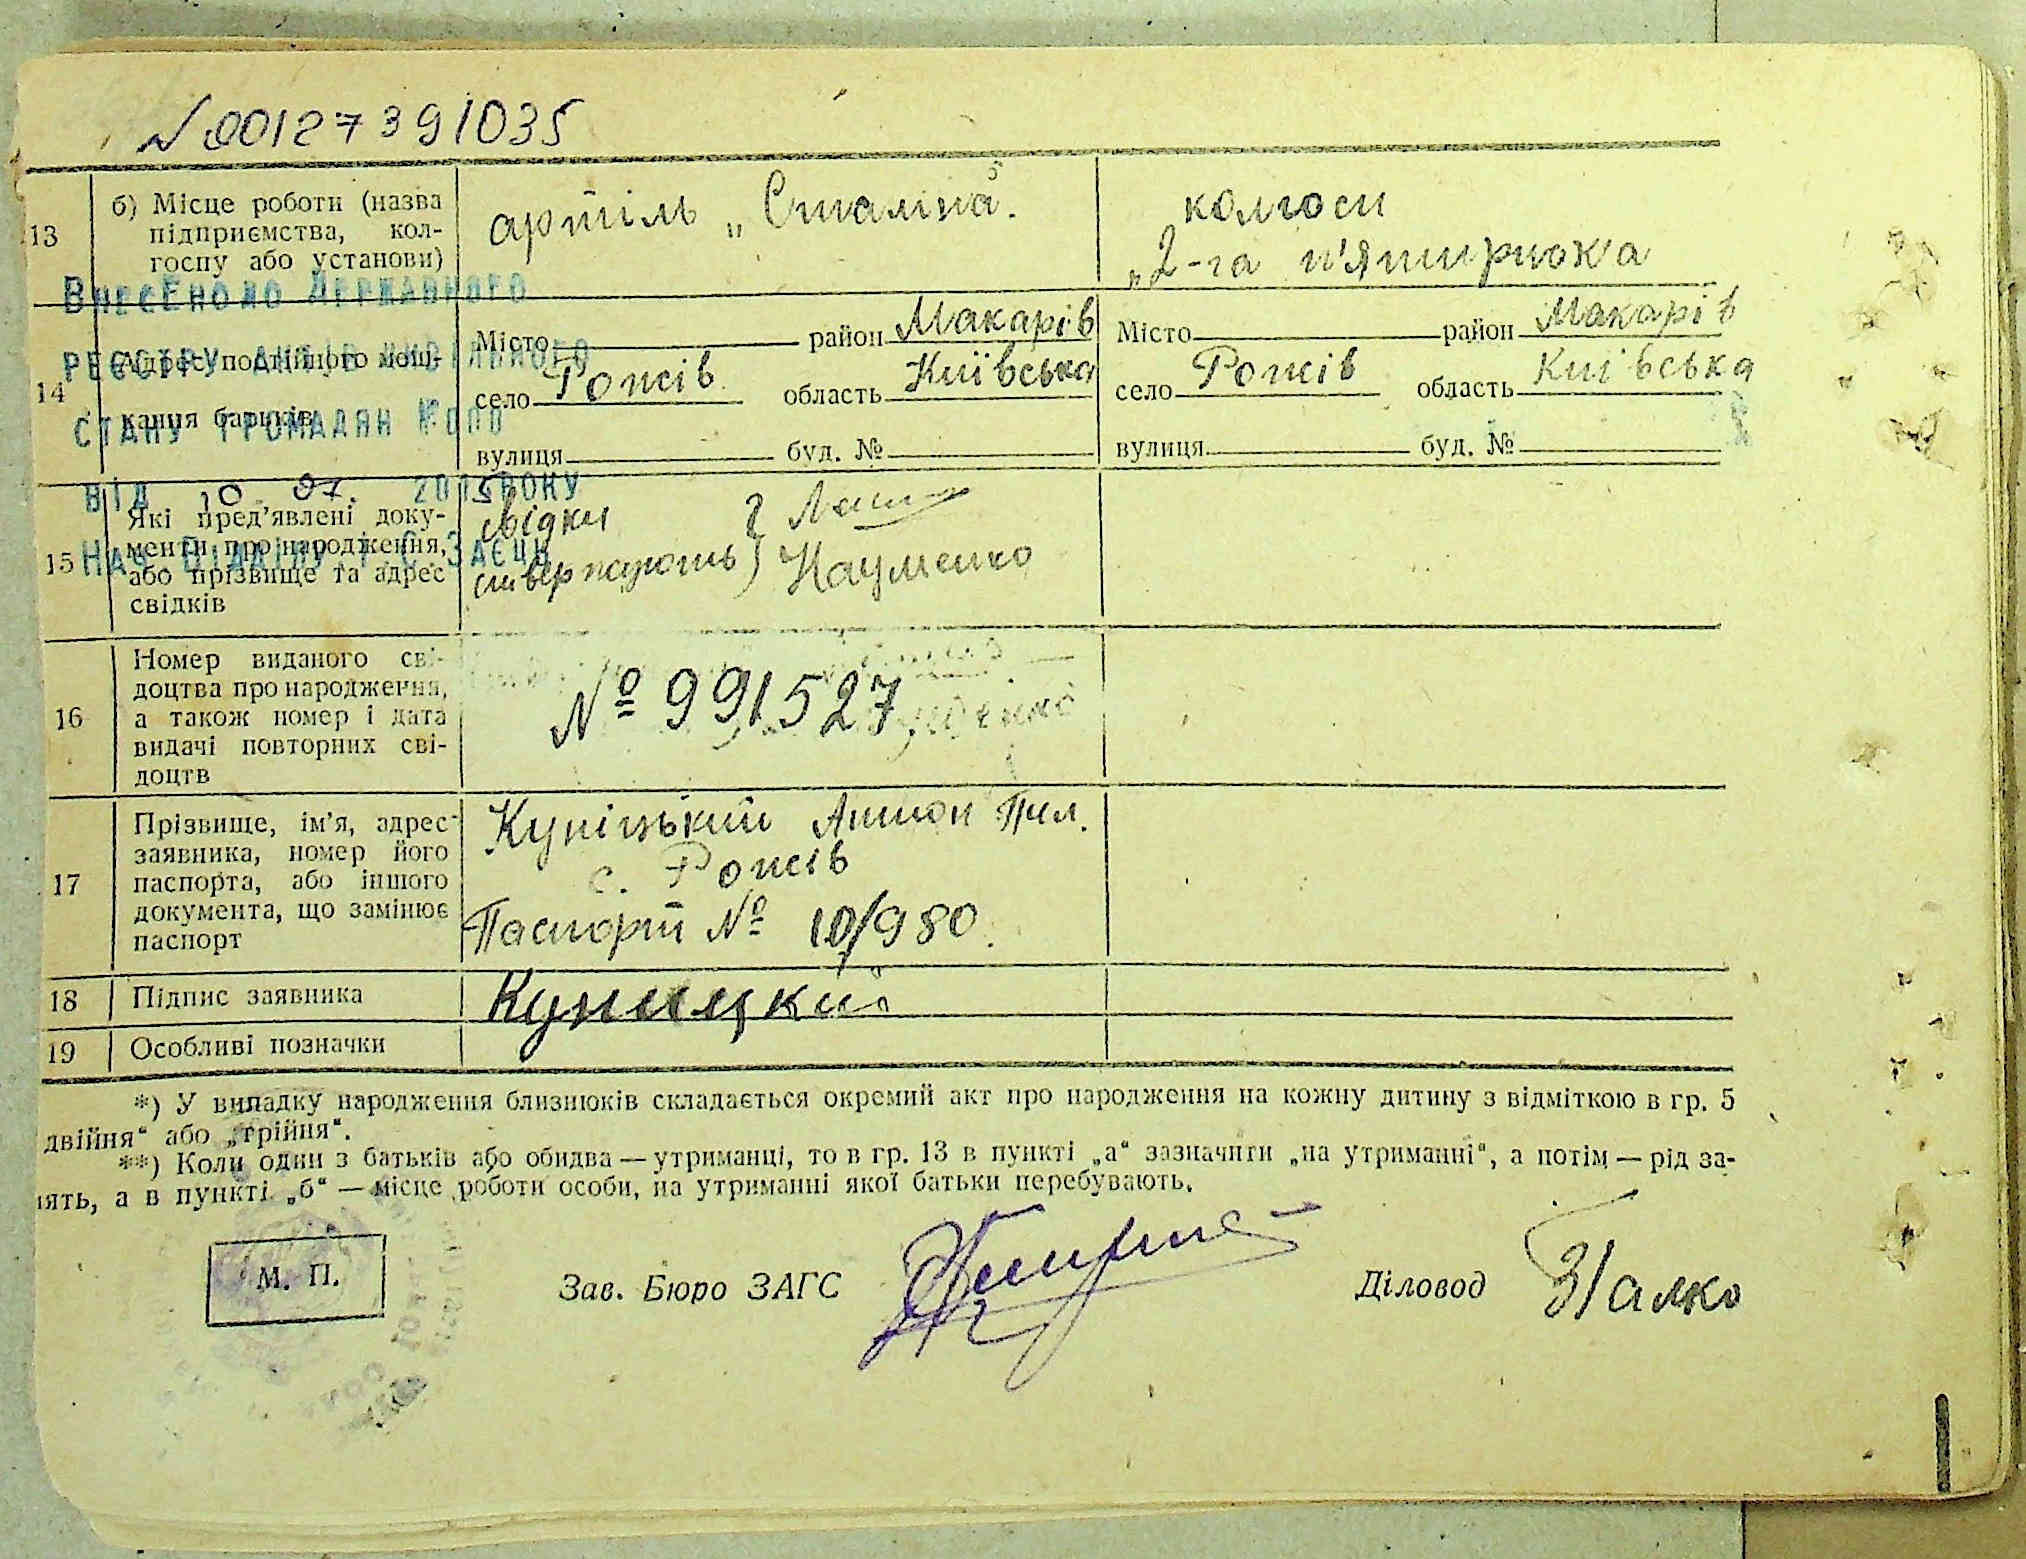 № 00127391035
13
б) Місце роботи (назва
підприємства, кол-
госпу або установи)
артіль „Сталіна".
колгосп
„2-га п'ятирічка
Внесено до Державного
реєстру актів цивільного
стану громадян
від 10 07. 2015 року
Нач. Відділу Т.С. Заєць
14
Адрес постійного меш-
кання батьків
Місто район Макарів
село Рожів область Київська
вулиця буд. №
Місто район Макарів
село Рожів область Київська
вулиця буд. №
15
Які пред'явлені доку-
менти про народження,
або прізвище та адрес
свідків
свідки
ствержують) Науменко
16
Номер виданого сві-
доцтва про народження,
а також номер і дата
видачі повторних сві-
доцтв
№ 991527
17
Прізвище, ім'я, адрес
заявника, номер його
паспорта, або іншого
документа, що замінює
паспорт
Купіцький Антон Пил.
с. Рожів
Паспорт № 10/980.
18
Підпис заявника
Купицкий
19
Особливі позначки
*) У випадку народження близнюків складається окремий акт про народження на кожну дитину з відміткою в гр. 5
двійня" або „трійня".
**) Коли один з батьків або обидва — утриманці, то в гр. 13 в пункті „а" зазначити „на утриманні", а потім — рід за-
нять, а в пункті „б" — місце роботи особи, на утриманні якої батьки перебувають.
М. П.
Зав. Бюро ЗАГС
Діловод